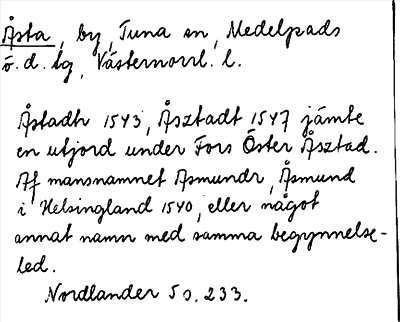 Åsta, by, Tuna sn, Medelpads
ö. d. tg, Västernorrl. l.
Åstadh 1543, Åsztadt 1547 jämte
en utjord under Fors Öster Åsztad.
Af mansnamnet Asmundr, Åsmund
i Helsingland 1540, eller något
annat namn med samma begynnelse-
led.
Nordlander 5 s. 233.